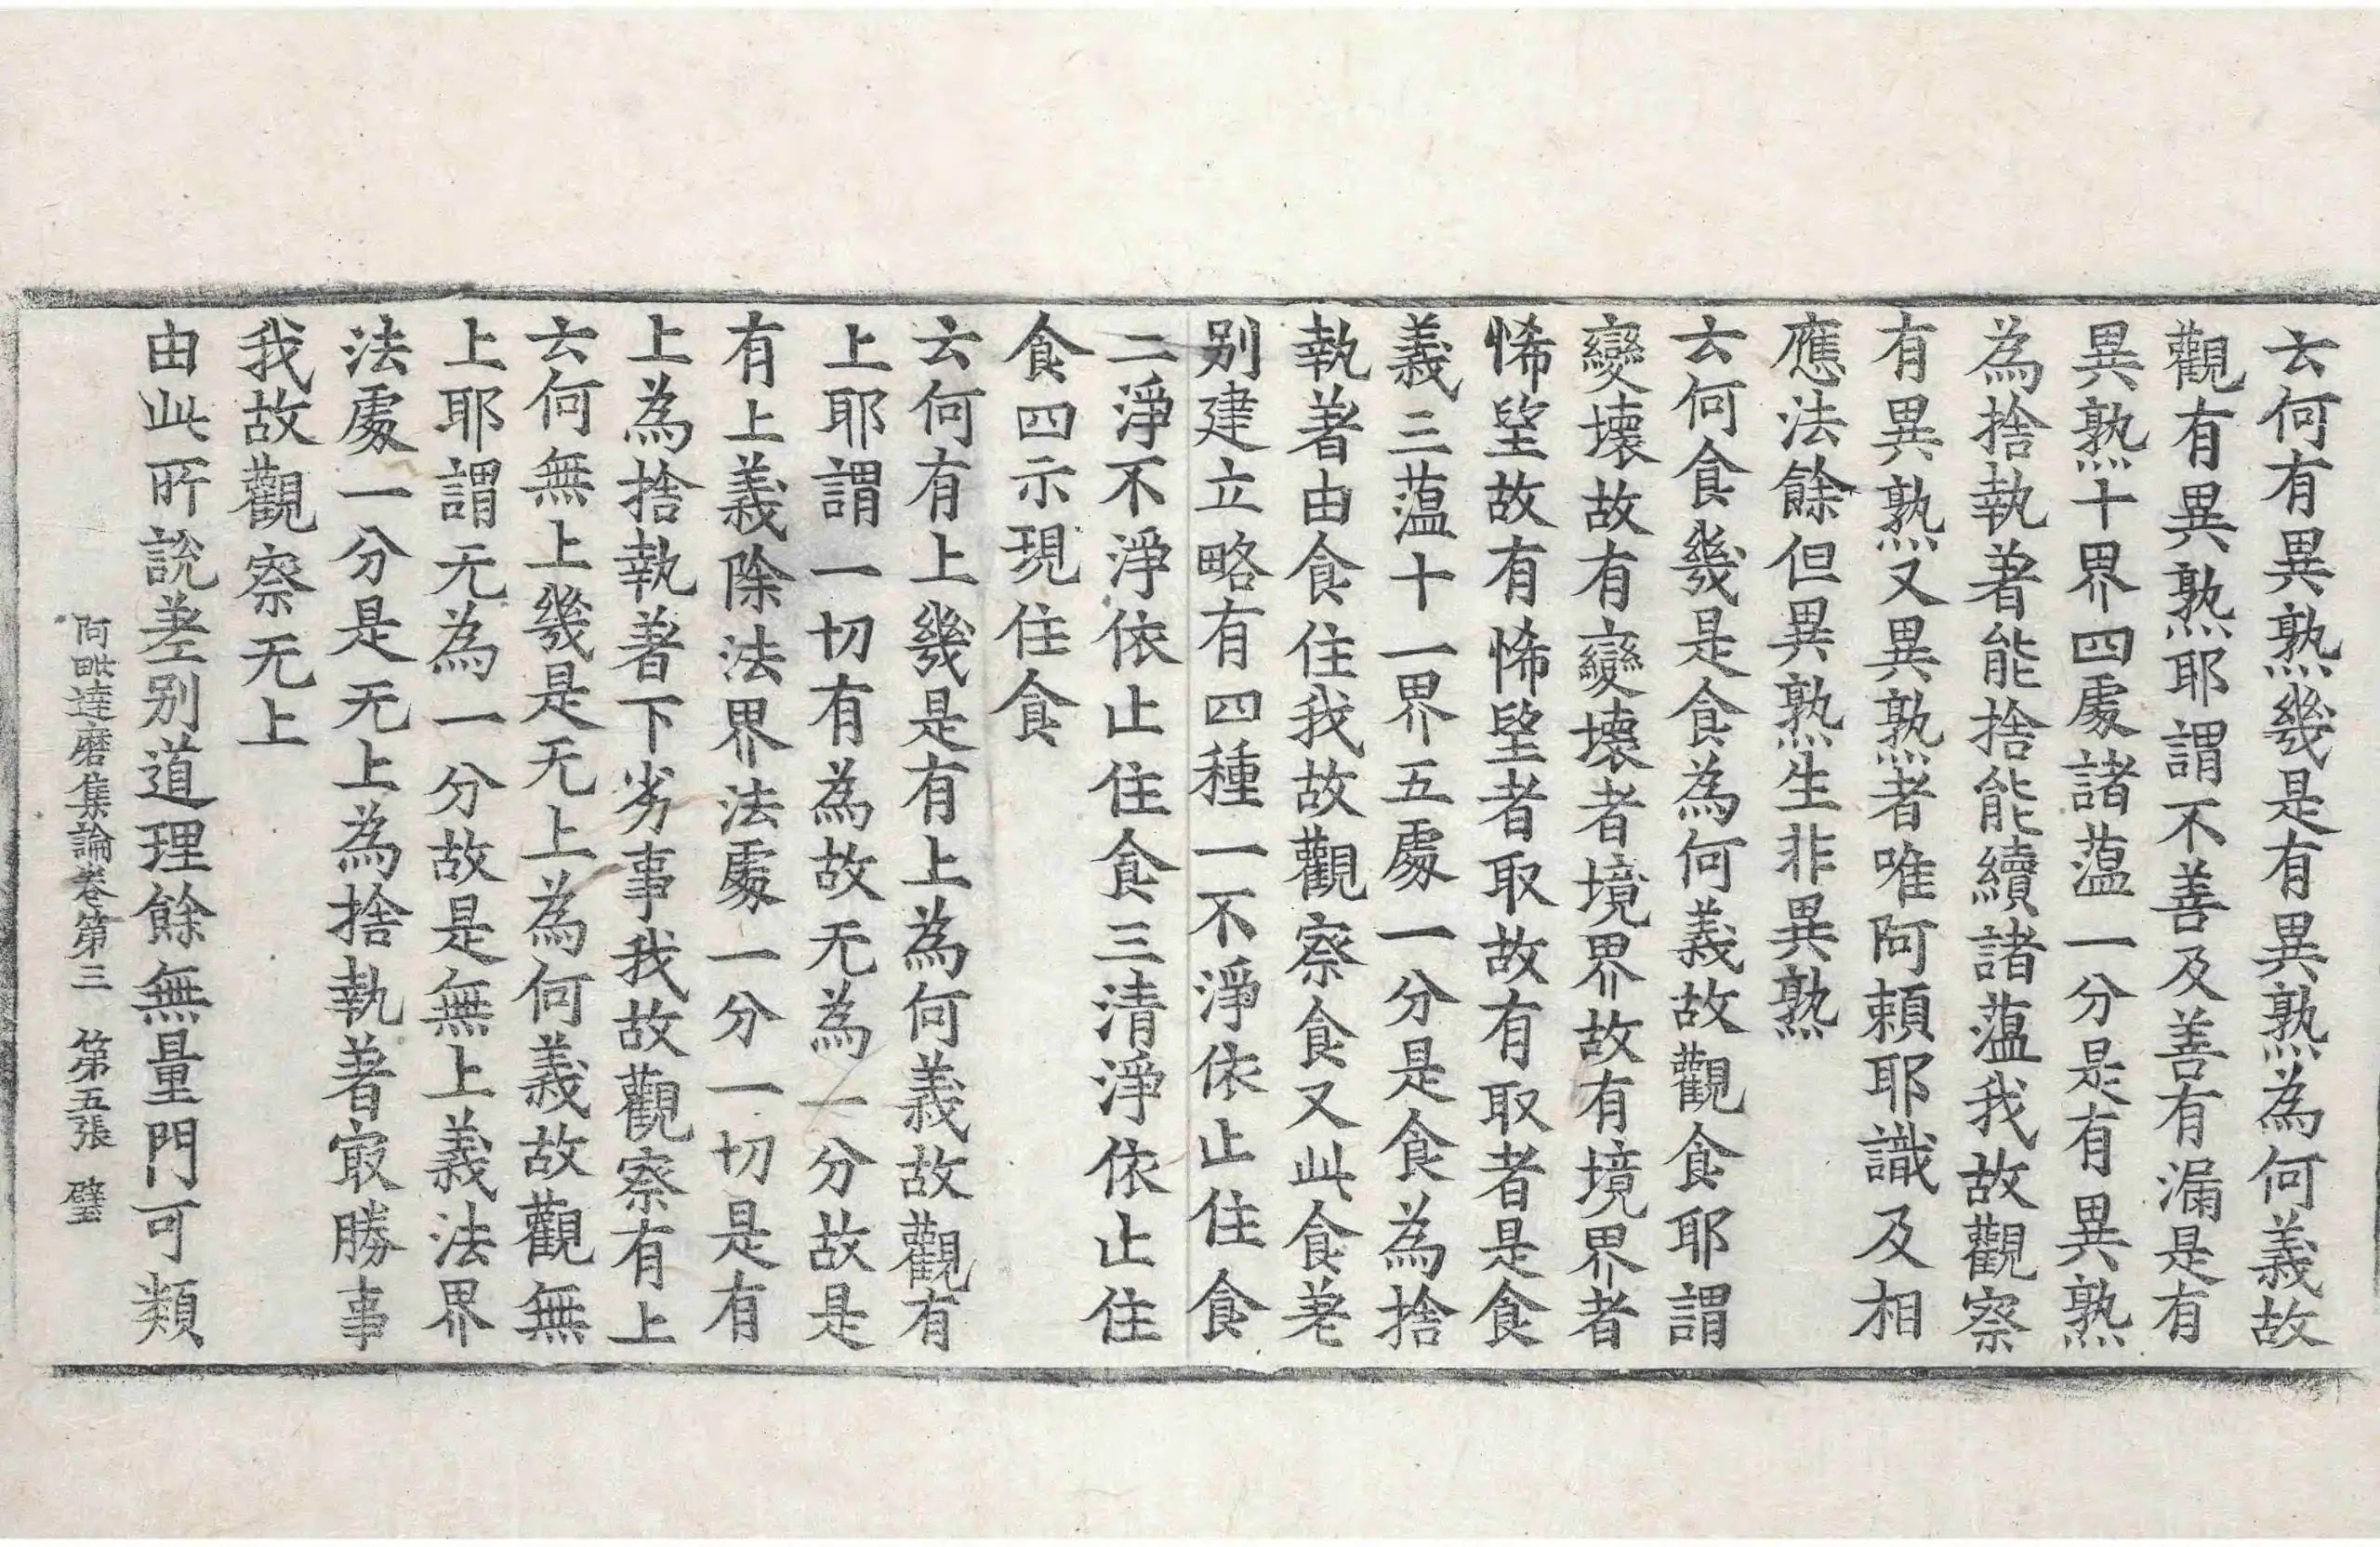 云何有異熟幾是有異熟為何義故
觀有異熟耶謂不善及善有漏是有
異熟十界四處諸蘊一分是有異熟
為捨執著能捨能續諸蘊我故觀察
有異熟又異熟者唯阿賴耶識及相
應法餘但異熟生非異熟
云何食幾是食為何義故觀食耶謂
變壞故有變壞者境界故有境界者
悕望故有悕望者取故有取者是食
義三蘊十一界五處一分是食為捨
執著由食住我故觀察食又此食差
別建立略有四種一不淨依止住食
二淨不淨依止住食三清淨依止住
食四示現住食
云何有上幾是有上為何義故觀有
上耶謂一切有為故无為一分故是
有上義除法界法處一分一切是有
上為捨執著下劣事我故觀察有上
云何無上幾是无上為何義故觀無
上耶謂无為一分故是無上義法界
法處一分是无上為捨執著㝡勝事
我故觀察无上
由此所說差別道理餘無量門可類
阿毗達磨集論卷第三 第五張 璧